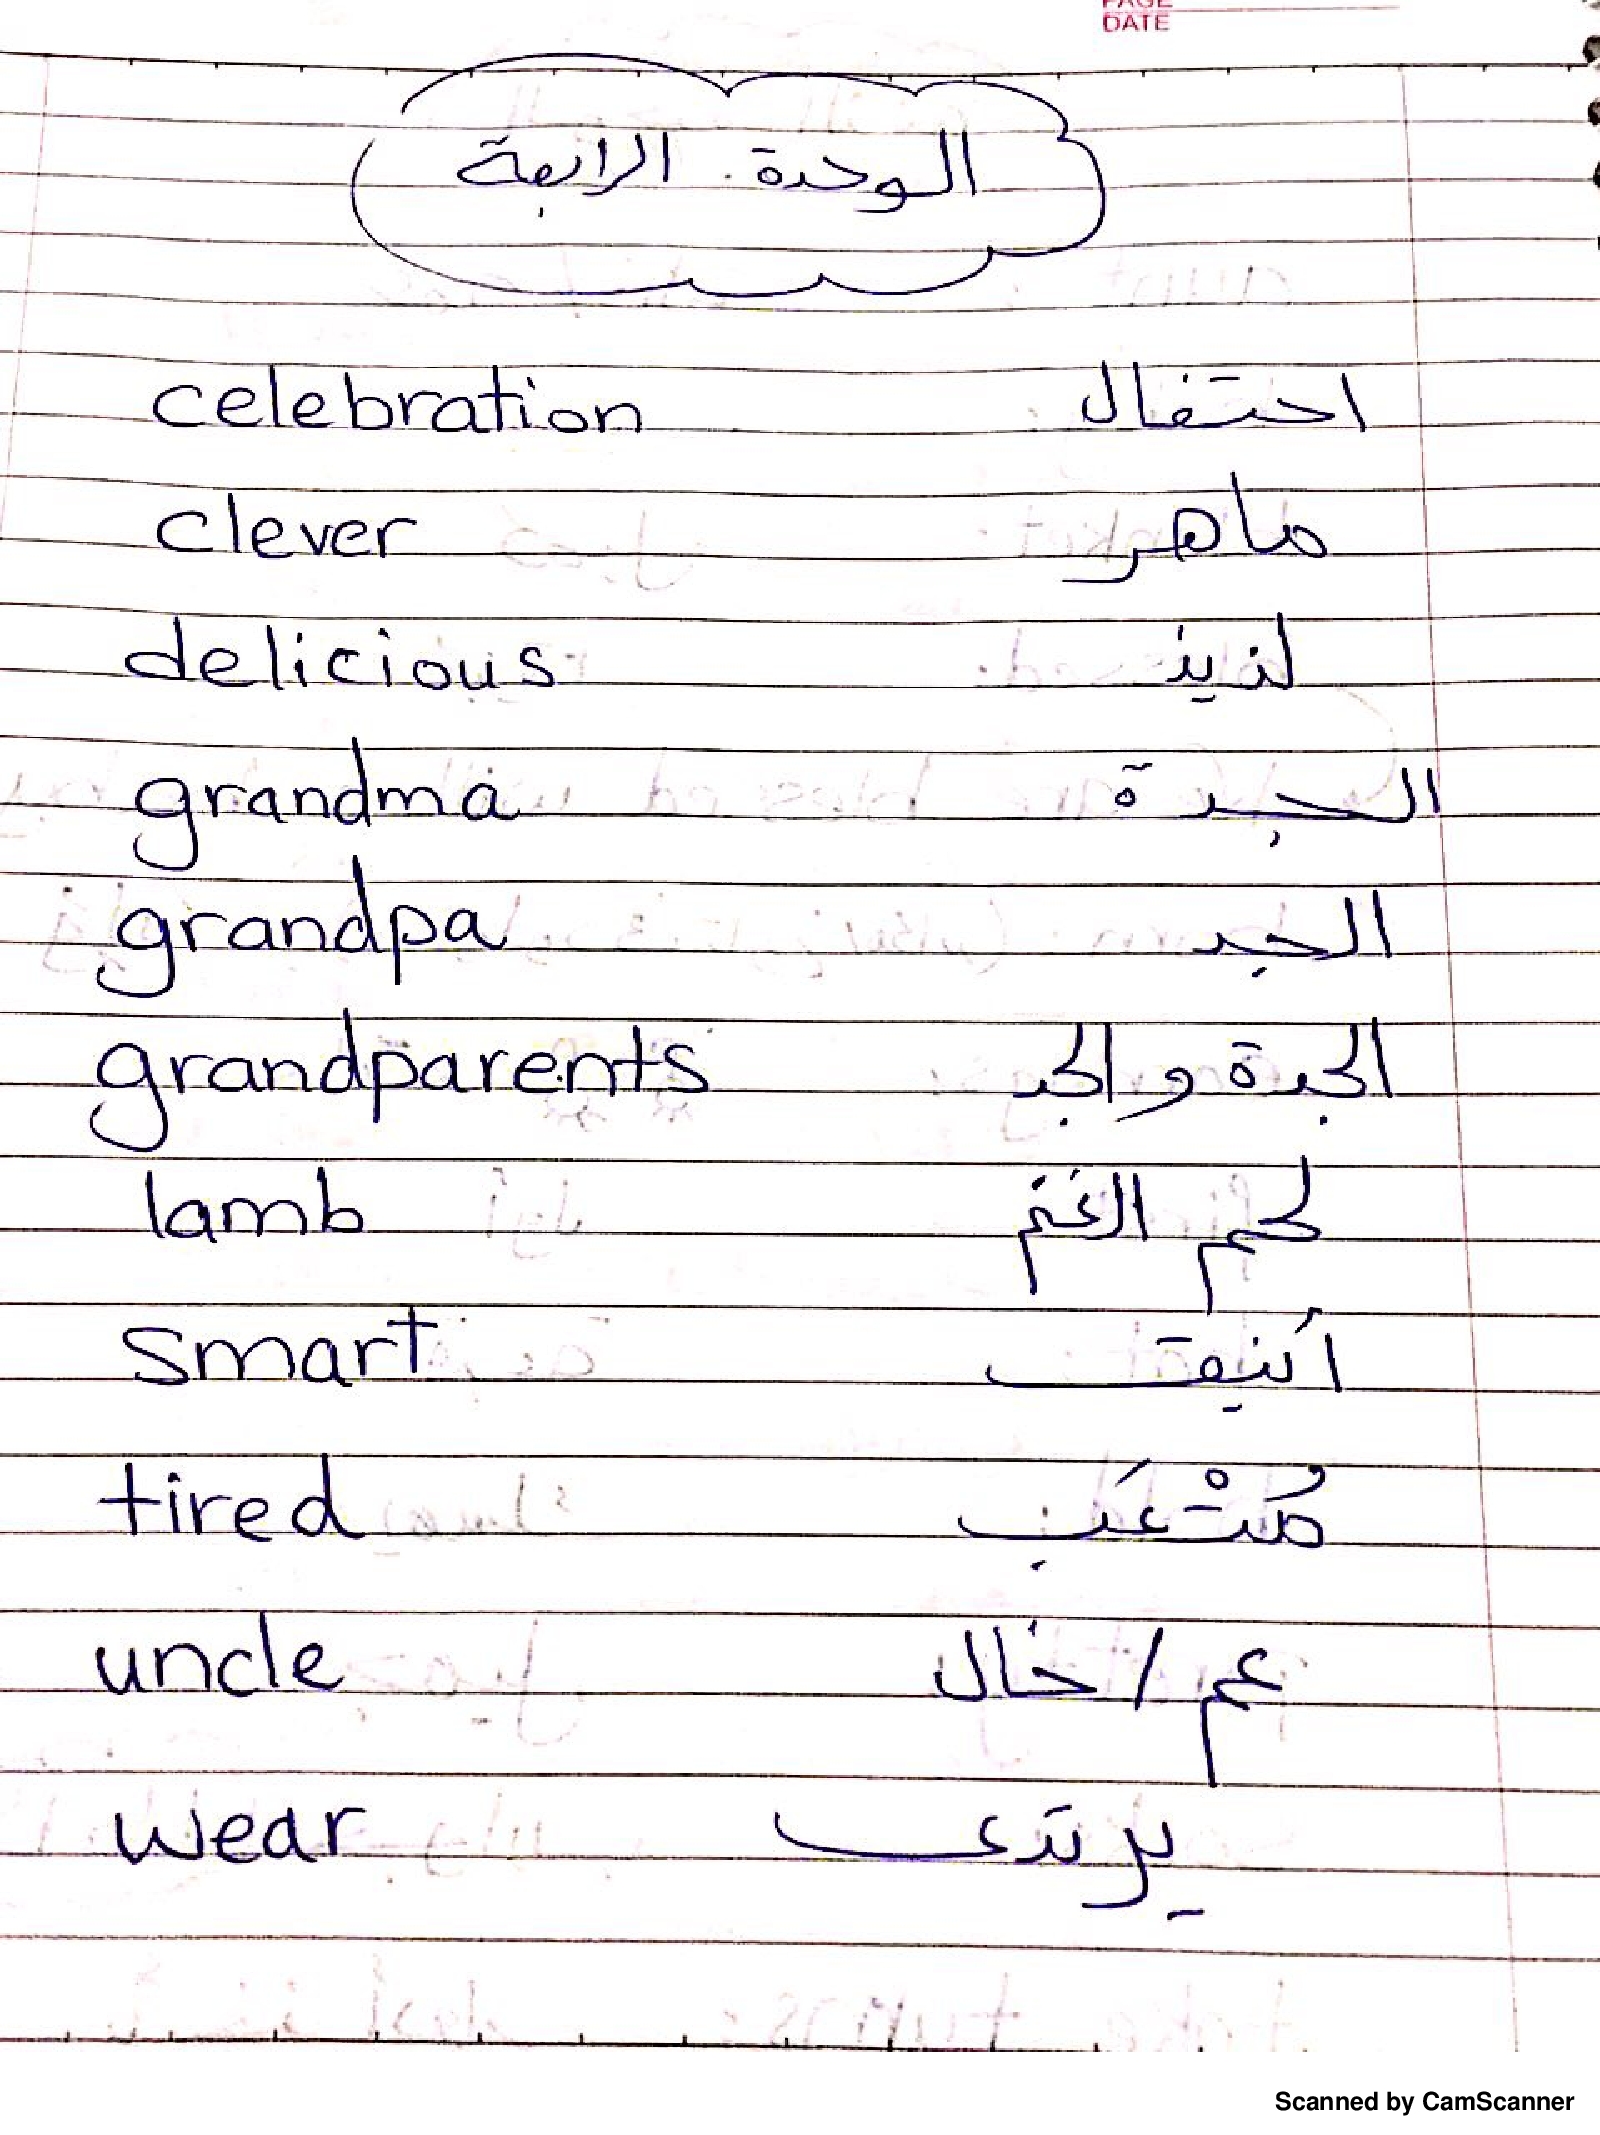 PAGE
DATE
الوحدة الرابعة
celebration احتفال
clever ماهر
delicious لذيذ
grandma الجدة
grandpa الجد
grandparents الجدة والجد
lamb لحم الغنم
smart أنيق
tired مُتْعَب
uncle عم / خال
wear يرتدي
Scanned by CamScanner